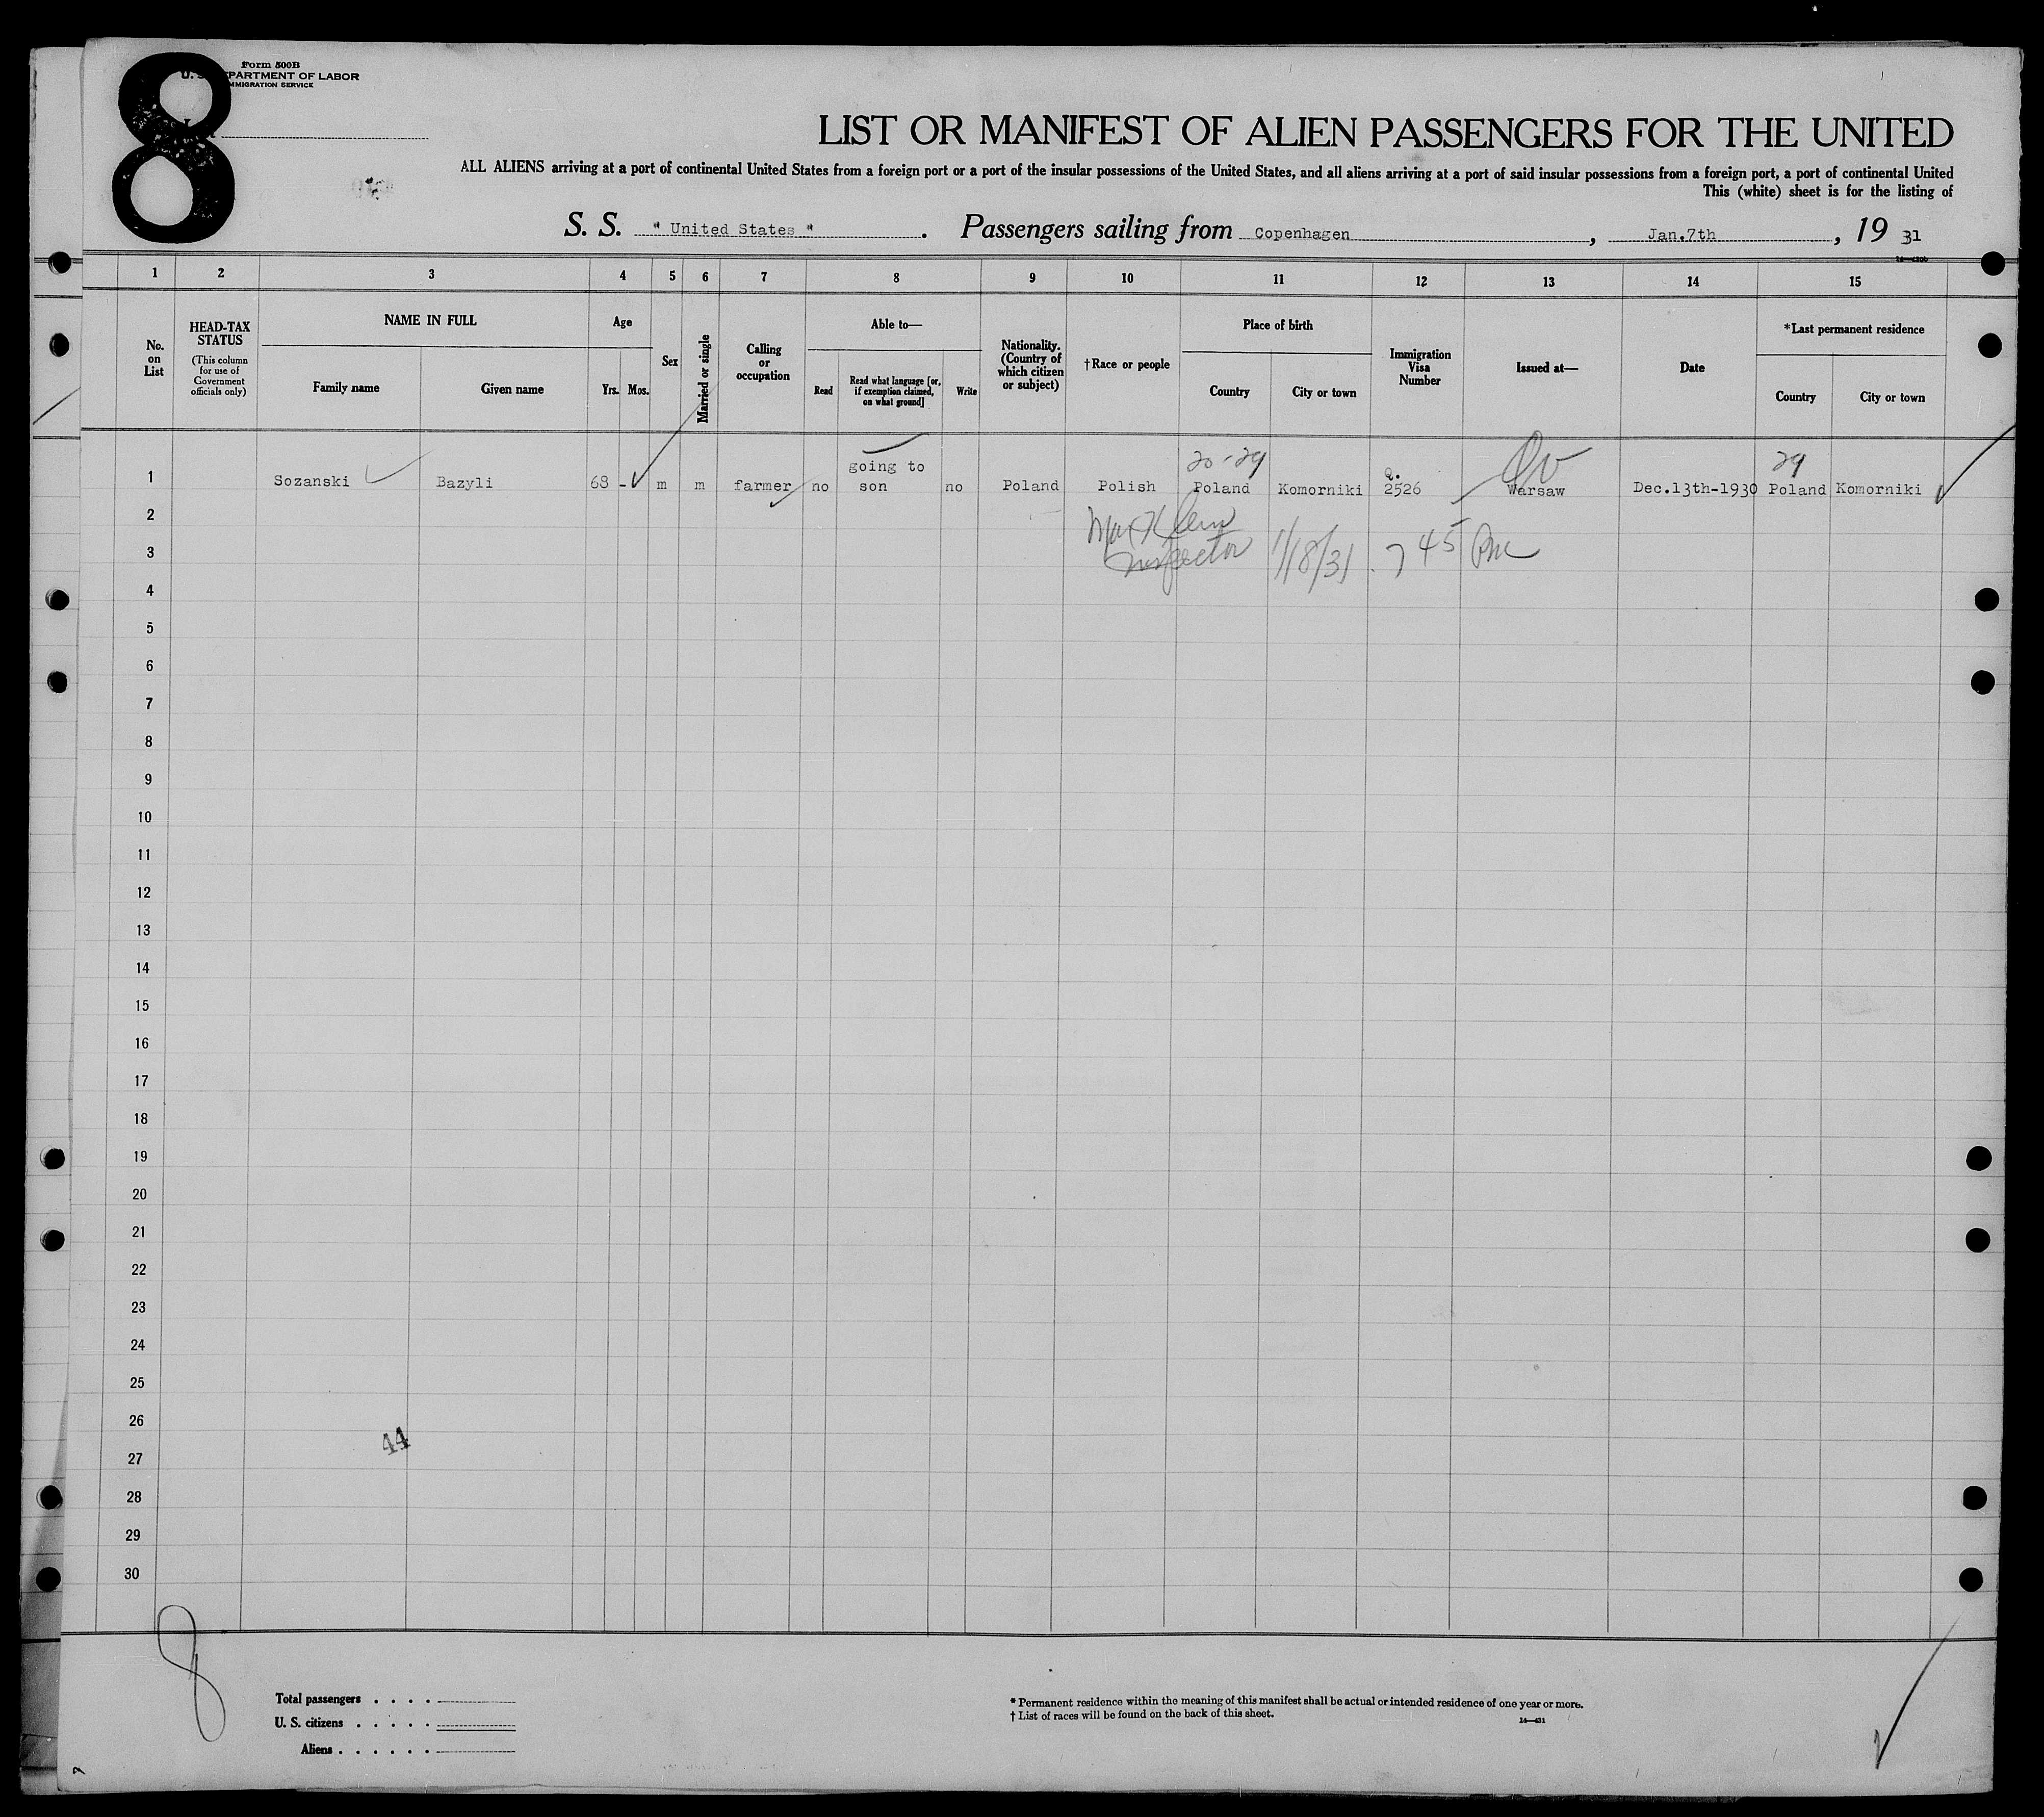 8
Form 500B
U. S. DEPARTMENT OF LABOR
IMMIGRATION SERVICE
LIST OR MANIFEST OF ALIEN PASSENGERS FOR THE UNITED
ALL ALIENS arriving at a port of continental United States from a foreign port or a port of the insular possessions of the United States, and all aliens arriving at a port of said insular possessions from a foreign port, a port of continental United
This (white) sheet is for the listing of
S. S. " United States " . Passengers sailing from Copenhagen , Jan.7th , 19 31
1 2 3 4 5 6 7 8 9 10 11 12 13 14 15
No. on List
HEAD-TAX STATUS
(This column for use of Government officials only)
NAME IN FULL
Family name
Given name
Age
Yrs. Mos.
Sex
Married or single
Calling or occupation
Able to—
Read
Read what language [or, if exemption claimed, on what ground]
Write
Nationality. (Country of which citizen or subject)
†Race or people
Place of birth
Country
City or town
Immigration Visa Number
Issued at—
Date
*Last permanent residence
Country
City or town
20-29
29
going to
Q.
1 Sozanski Bazyli 68 - m m farmer no son no Poland Polish Poland Komorniki 2526 Warsaw Dec.13th-1930 Poland Komorniki
2
Inspector 1/18/31 . 7 45 PM
3
4
5
6
7
8
9
10
11
12
13
14
15
16
17
18
19
20
21
22
23
24
25
26
44
27
28
29
30
8
Total passengers . . . .
U. S. citizens . . . . .
Aliens . . . . . .
* Permanent residence within the meaning of this manifest shall be actual or intended residence of one year or more.
† List of races will be found on the back of this sheet.
14—431